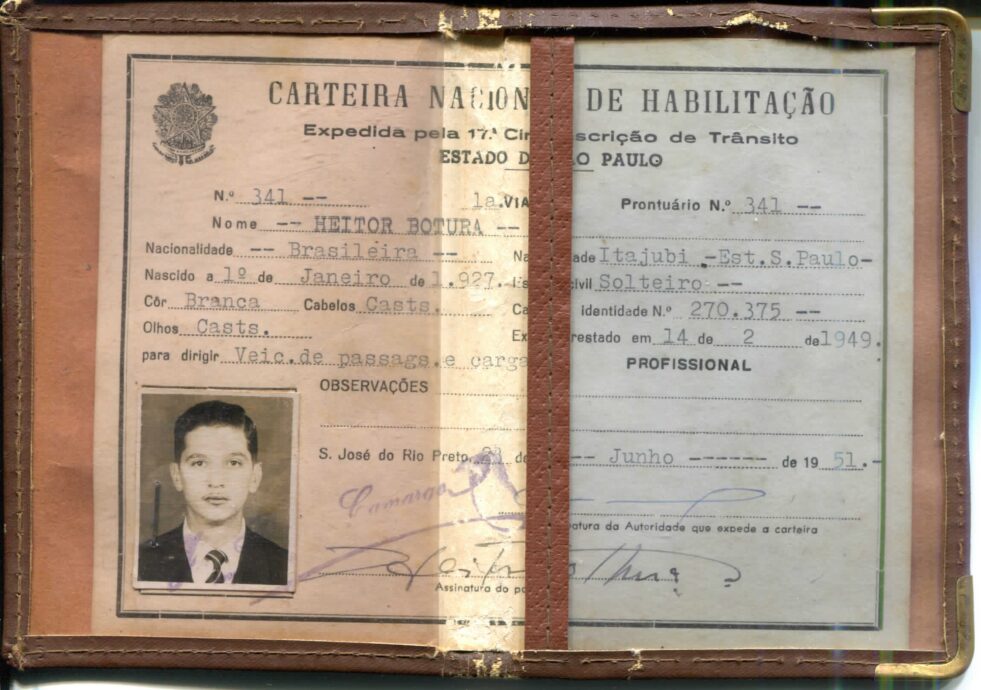 CARTEIRA NACION DE HABILITAÇÃO
Expedida pela 17.ª Cir scrição de Trânsito
ESTADO D O PAULO
N.º 341 -- 1a.VIA Prontuário N.º 341 --
Nome -- HEITOR BOTURA --
Nacionalidade -- Brasileira -- Na dade Itajubi -Est.S.Paulo-
Nascido a 1º de Janeiro de 1.927.- Es ivil Solteiro --
Côr Branca Cabelos Casts. Ca Identidade N.º 270.375 --
Olhos Casts. Ex restado em 14 de 2 de 1949.
para dirigir Veic.de passags.e carga PROFISSIONAL
OBSERVAÇÕES
S. José do Rio Preto, de -- Junho ------ de 19 51.-
Camargo
natura da Autoridade que expede a carteira
Heitor Botura
Assinatura do po